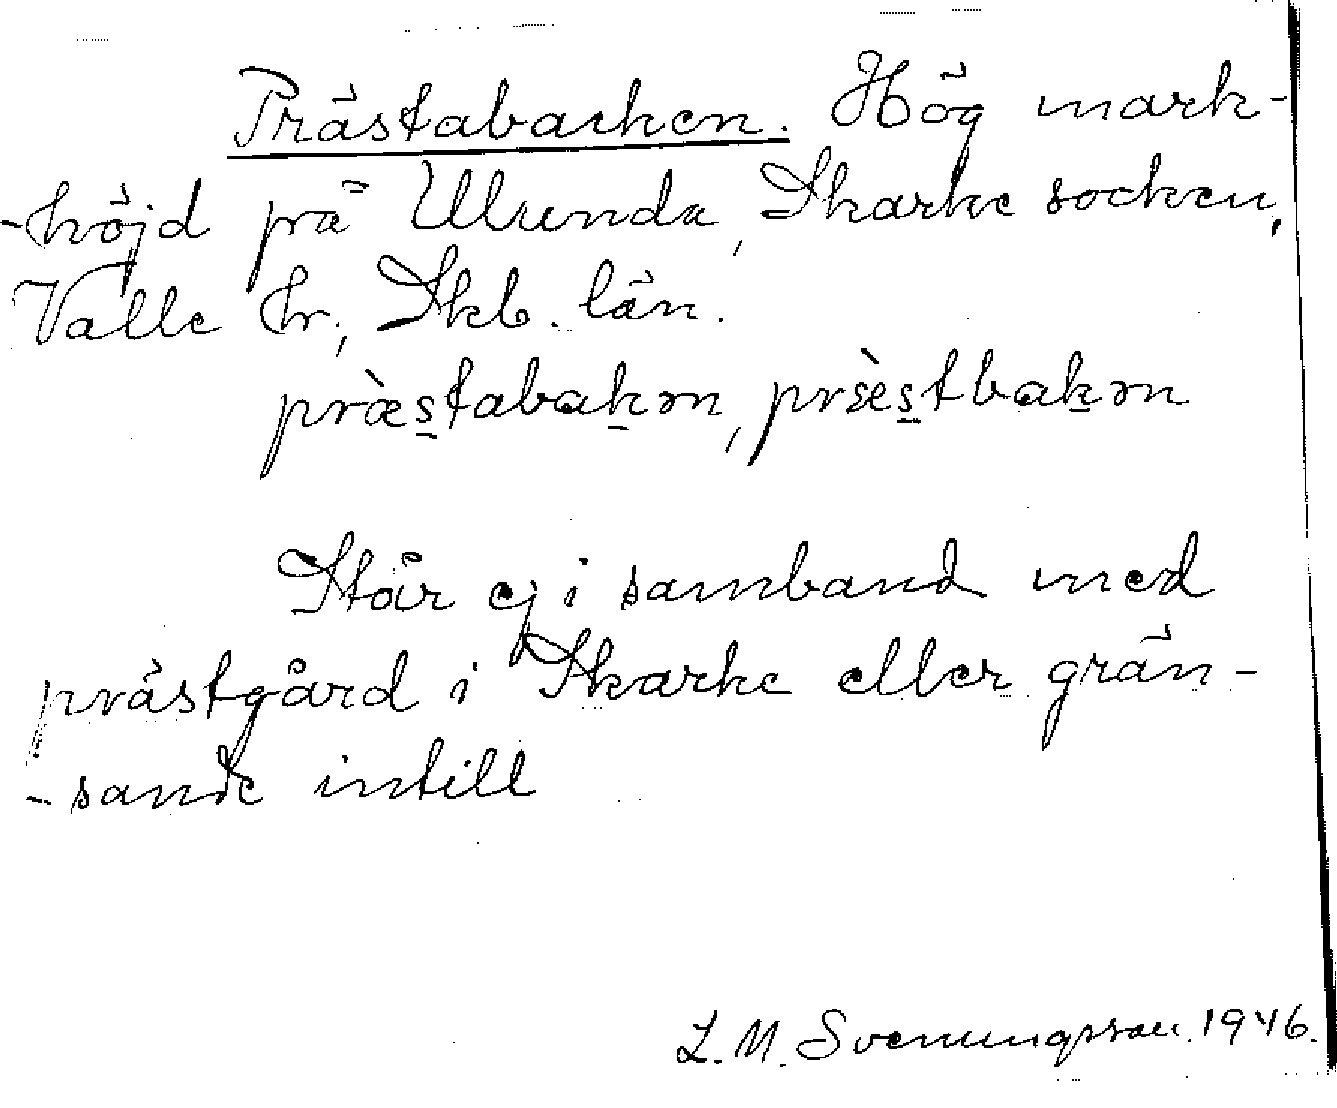 Prästabacken. Hög mark-
-höjd på Ulunda, Skärke socken,
Valle hr, Skb. län.
præ̀s̱tabaḵən, prѐs̱tbaḵən
Står ej i samband med
prästgård i Skarke eller grän-
-sande intill
L. M. Svenungsson. 1946.